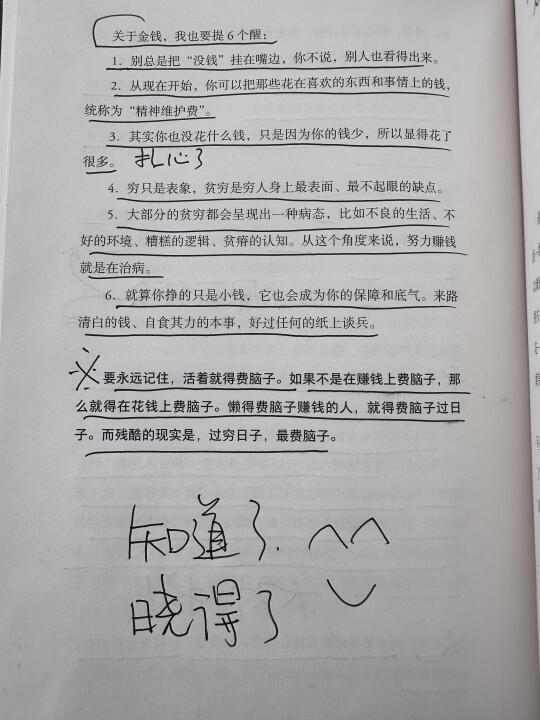 关于金钱，我也要提6个醒：
1．别总是把“没钱”挂在嘴边，你不说，别人也看得出来。
2．从现在开始，你可以把那些花在喜欢的东西和事情上的钱，
统称为“精神维护费”。
3．其实你也没花什么钱，只是因为你的钱少，所以显得花了
很多。 扎心了
4．穷只是表象，贫穷是穷人身上最表面、最不起眼的缺点。
5．大部分的贫穷都会呈现出一种病态，比如不良的生活、不
好的环境、糟糕的逻辑、贫瘠的认知。从这个角度来说，努力赚钱
就是在治病。
6．就算你挣的只是小钱，它也会成为你的保障和底气。来路
清白的钱、自食其力的本事，好过任何的纸上谈兵。
要永远记住，活着就得费脑子。如果不是在赚钱上费脑子，那
么就得在花钱上费脑子。懒得费脑子赚钱的人，就得费脑子过日
子。而残酷的现实是，过穷日子，最费脑子。
知道了.
晓得了